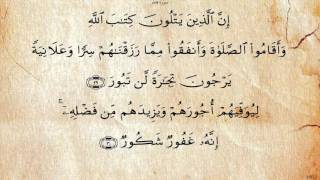 إِنَّ ٱلَّذِينَ يَتْلُونَ كِتَٰبَ ٱللَّهِ
وَأَقَامُوا۟ ٱلصَّلَوٰةَ وَأَنفَقُوا۟ مِمَّا رَزَقْنَٰهُمْ سِرًّا وَعَلَانِيَةً
يَرْجُونَ تِجَٰرَةً لَّن تَبُورَ ٢٩
لِيُوَفِّيَهُمْ أُجُورَهُمْ وَيَزِيدَهُم مِّن فَضْلِهِۦٓ ۚ
إِنَّهُۥ غَفُورٌ شَكُورٌ ٣٠